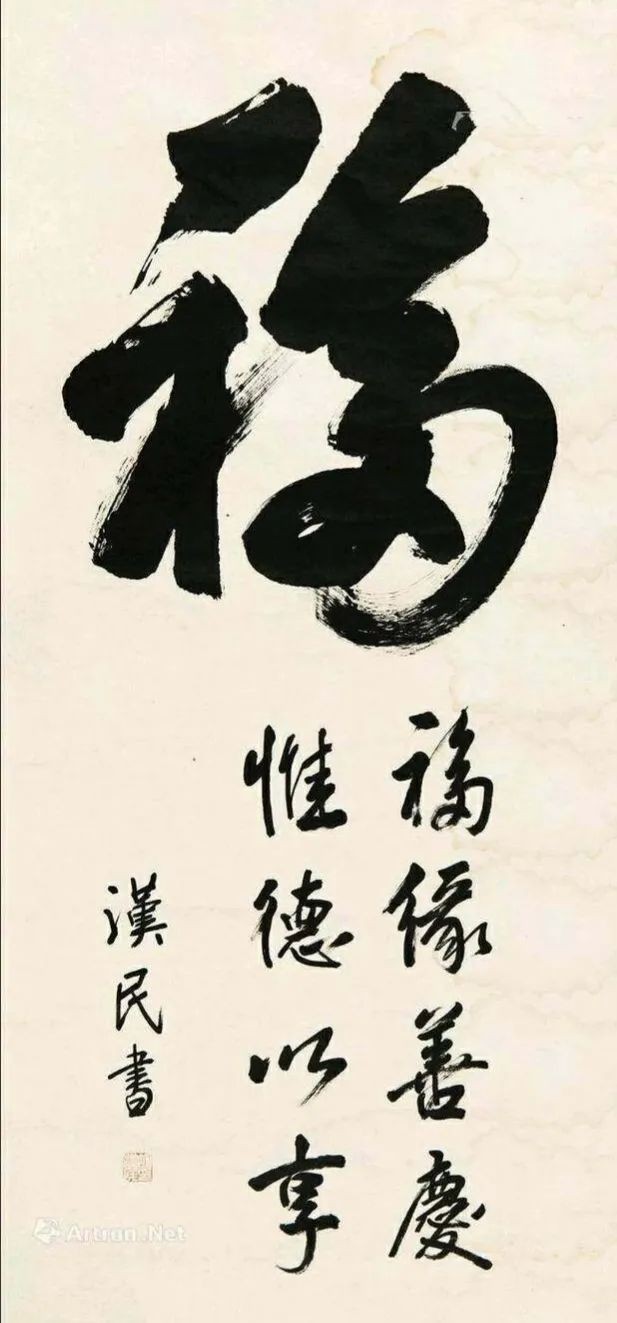 福
福缘善慶
惟德以享
漢民書
Artron.Net